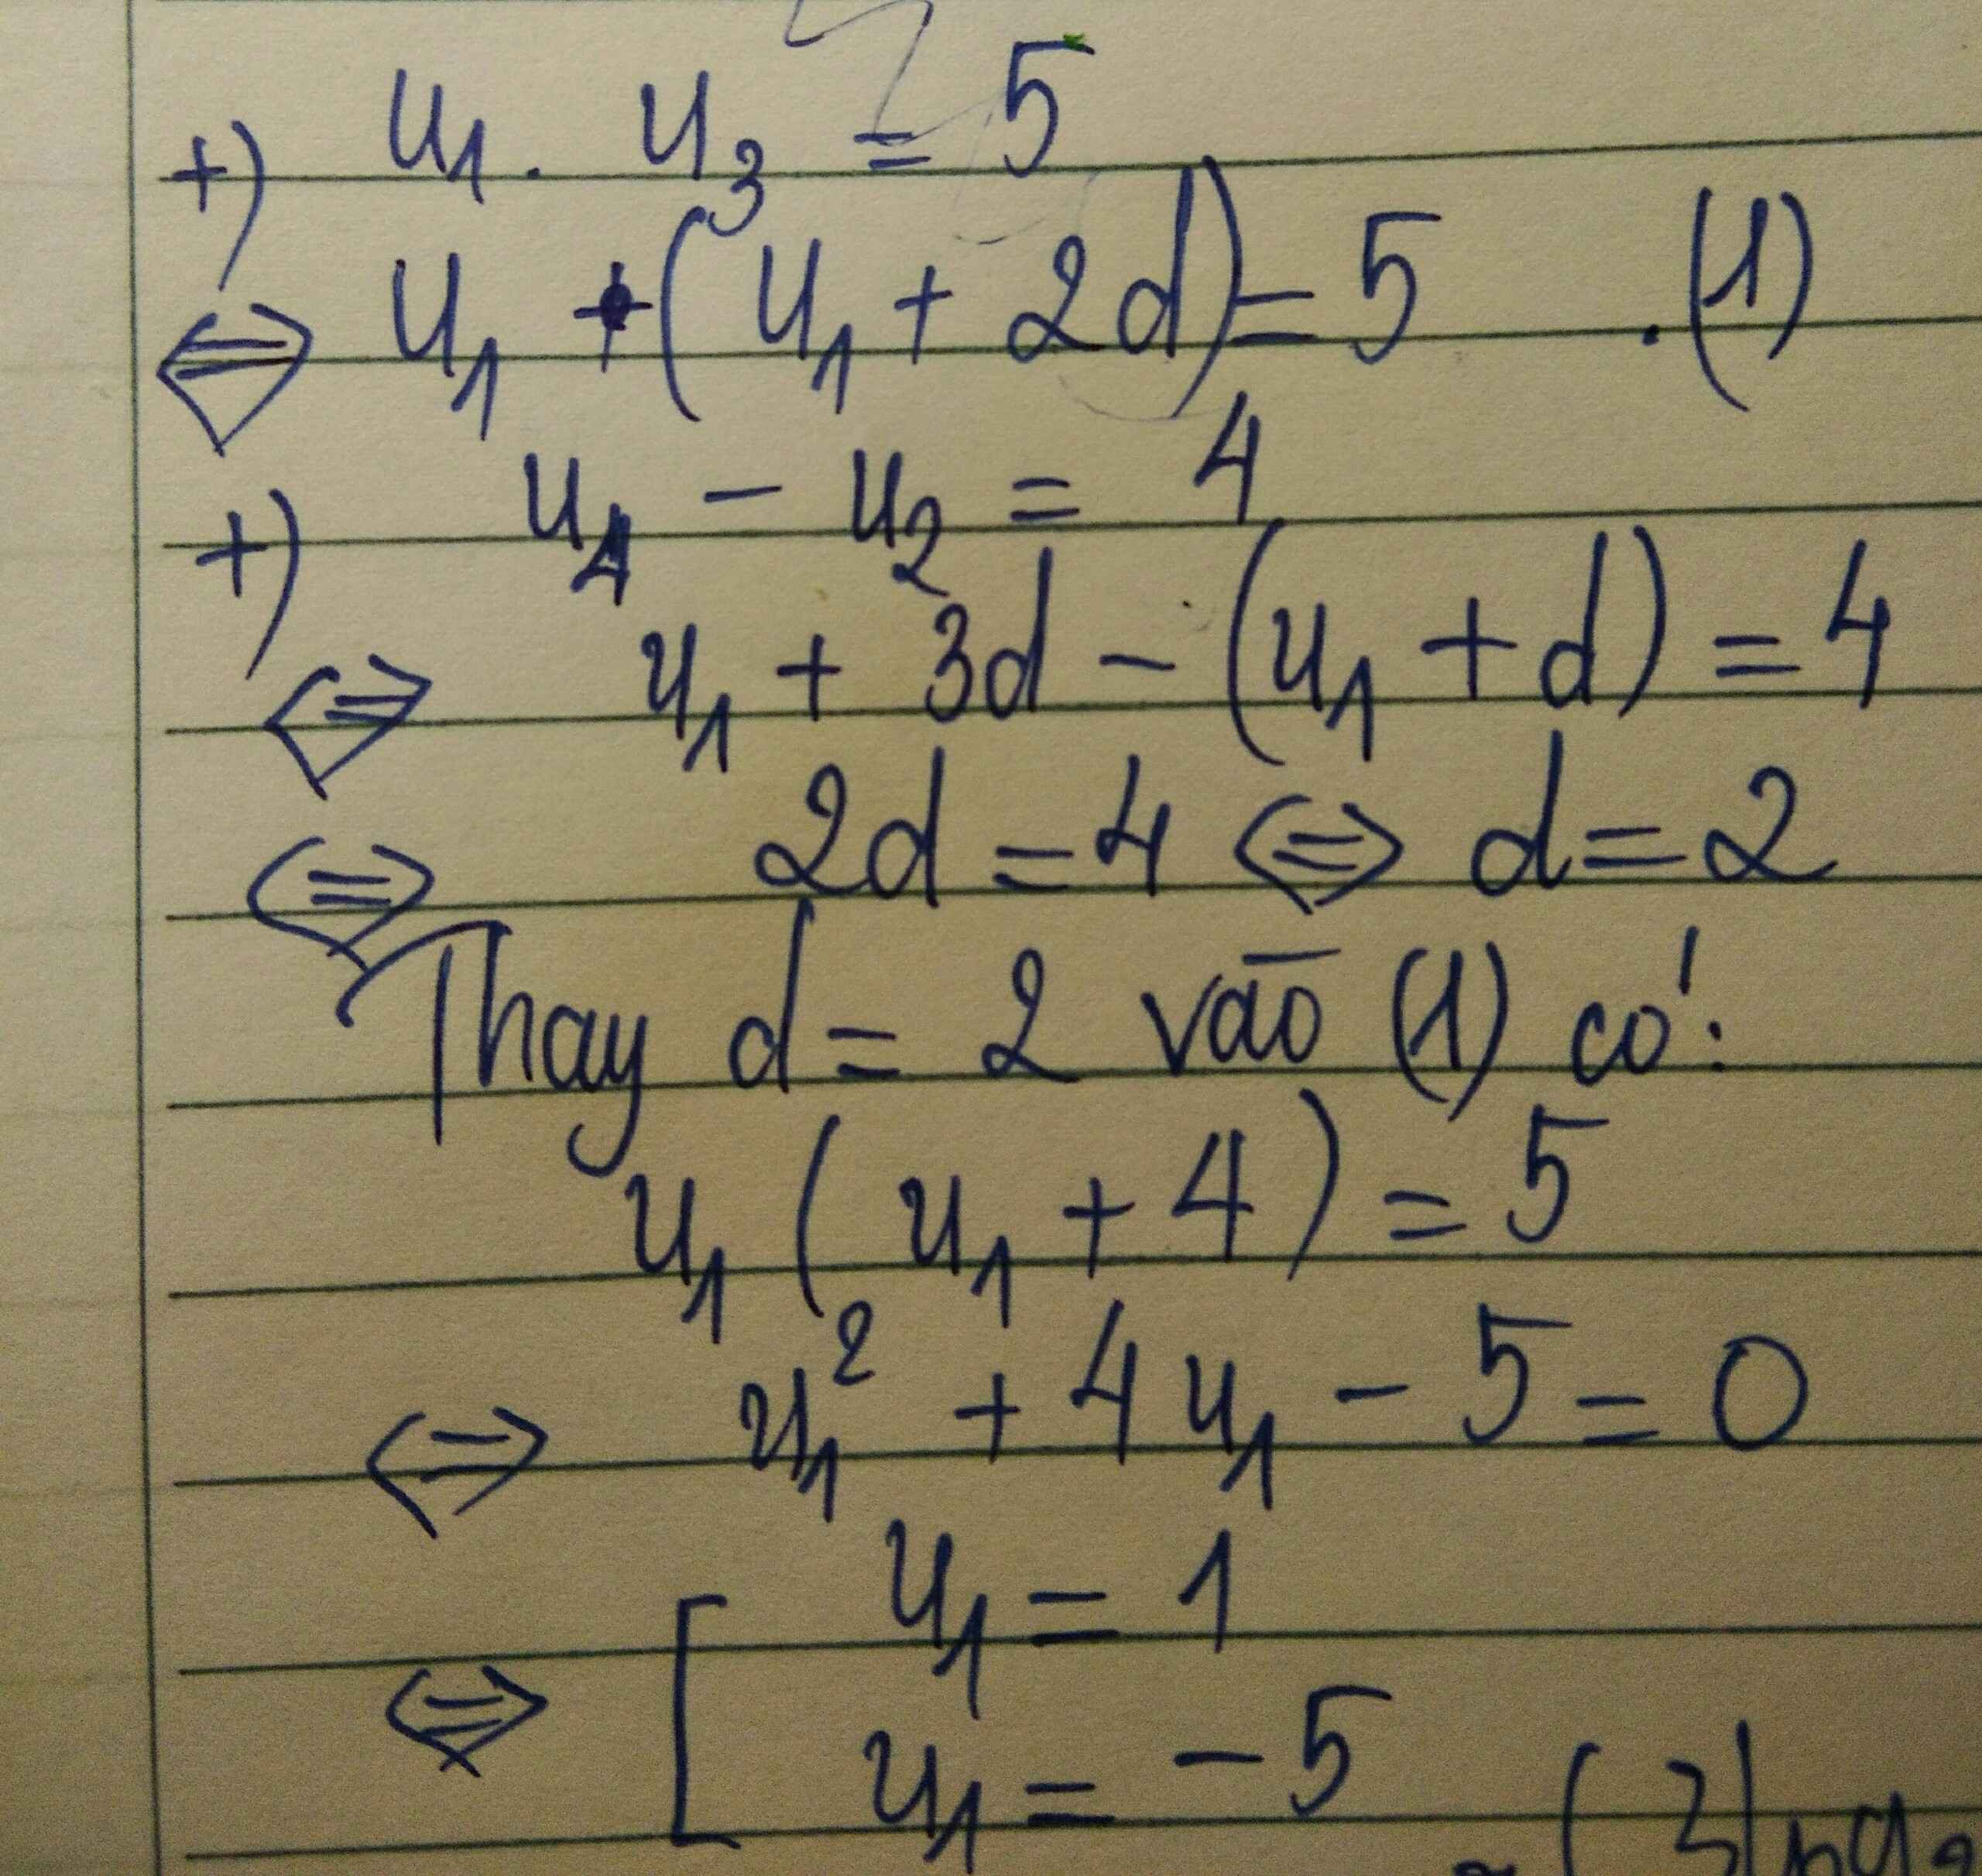 +) u₁ . u₃ = 5
⇔ u₁ . (u₁ + 2d) = 5 . (1)
+) u₄ - u₂ = 4
⇔ u₁ + 3d - (u₁ + d) = 4
⇔ 2d = 4 ⇔ d = 2
Thay d = 2 vào (1) có:
u₁ (u₁ + 4) = 5
⇔ u₁² + 4u₁ - 5 = 0
⇔ [ u₁ = 1
u₁ = -5